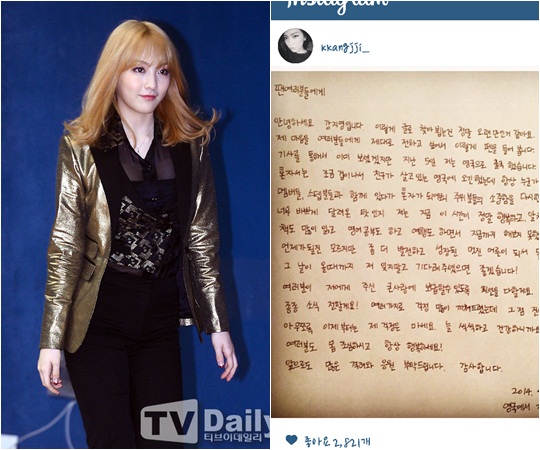 Instagram
kkangjji_
팬여러분들에게
안녕하세요 강지영입니다. 이렇게 글로 찾아뵙는건 정말 오랜만인거 같아요.
제 마음을 여러분들에게 제대로 전하고 싶어서 이렇게 펜을 들어 봅니다.
기사를 통해서 이미 보셨겠지만 지난 5일 저는 영국으로 출국 했습니다.
혼자서는 조금 겁이나서 친구가 살고있는 영국에 오긴했는데 항상 누군가
멤버들, 스텝분들과 함께 있다가 혼자가 되면서 주위분들의 소중함을 다시
너무 바쁘게 달려온 탓인지 저는 지금 이 시간이 정말 행복하고
책도 많이 읽고 영어공부도 하고 여행도 하면서 지금까지 해보지 못한
언제가될진 모르지만 좀 더 발전하고 성장된 멋진 여성이 되서
그 날이 올때까지 저 잊지말고 기다려주셨으면 좋겠습니다!
여러분이 저에게 주신 큰사랑에 보답할수있도록 최선을 다할게요.
종종 소식 전할게요! 여러가지로 걱정 많이 끼쳐드렸는데 그 점
아무쪼록 이제부터는 제 걱정은 마세요. 늘 씩씩하고 건강하니까요
여러분도 몸 조심하시고 항상 행복하세요!
앞으로도 많은 격려와 응원 부탁드립니다. 감사합니다.
2014.
영국에서
좋아요 2,821개
TV Daily
티브이데일리